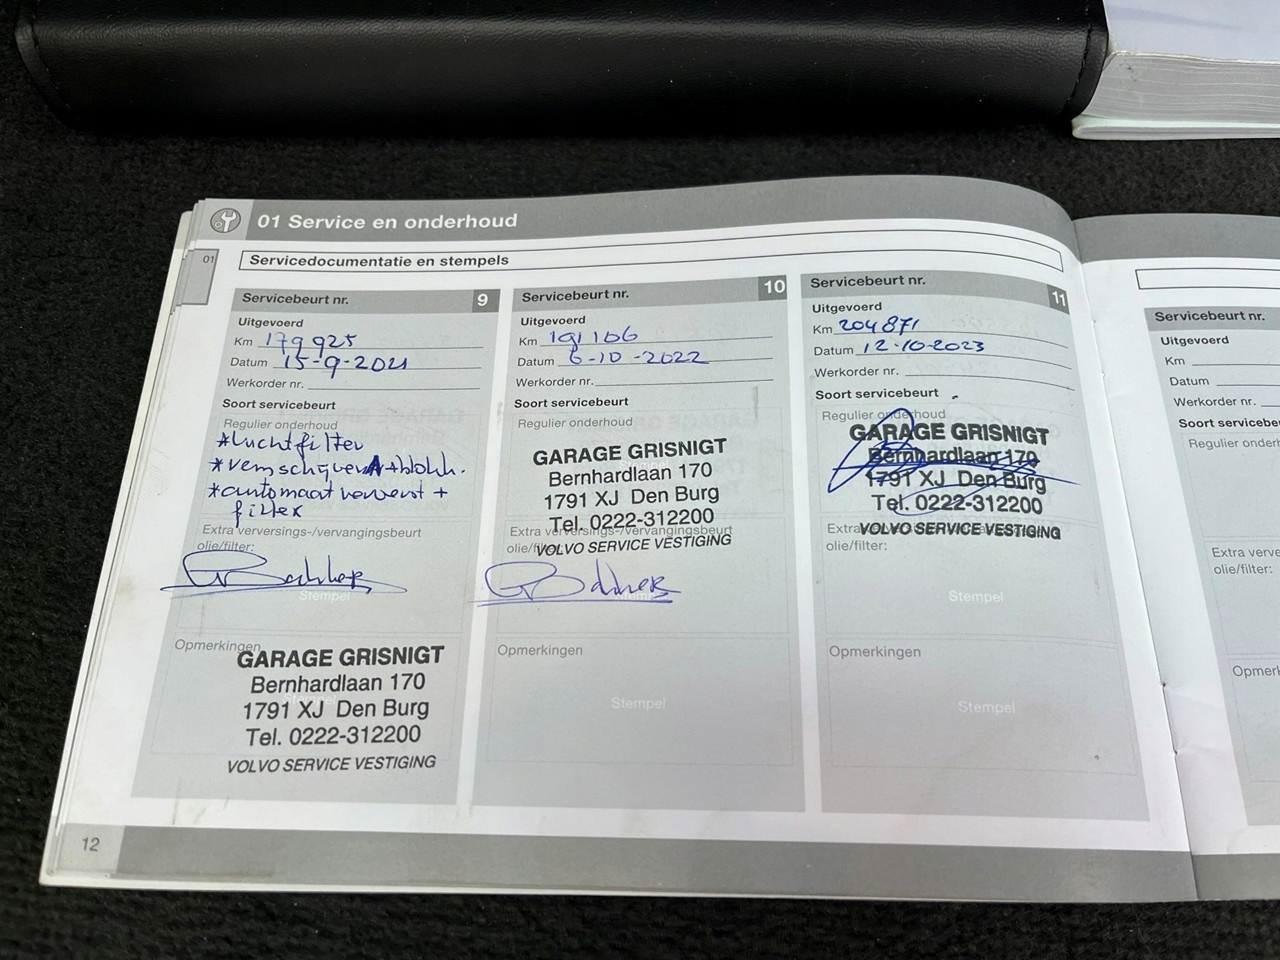 01 Service en onderhoud
01
Servicedocumentatie en stempels
Servicebeurt nr. 9
Uitgevoerd
Km 179925
Datum 15-9-2021
Werkorder nr.
Soort servicebeurt
Regulier onderhoud
*Luchtfilter
*remschijven A+blokk.
*automaat ververst +
filter
Extra verversings-/vervangingsbeurt
olie/filter:
Stempel
Opmerkingen
GARAGE GRISNIGT
Bernhardlaan 170
1791 XJ Den Burg
Tel. 0222-312200
VOLVO SERVICE VESTIGING
Servicebeurt nr. 10
Uitgevoerd
Km 191106
Datum 6-10-2022
Werkorder nr.
Soort servicebeurt
Regulier onderhoud
GARAGE GRISNIGT
Bernhardlaan 170
1791 XJ Den Burg
Tel. 0222-312200
Extra verversings-/vervangingsbeurt
olie/filter:
VOLVO SERVICE VESTIGING
Opmerkingen
Stempel
Servicebeurt nr. 11
Uitgevoerd
Km 204871
Datum 12-10-2023
Werkorder nr.
Soort servicebeurt
Regulier onderhoud
GARAGE GRISNIGT
Bernhardlaan 170
1791 XJ Den Burg
Tel. 0222-312200
VOLVO SERVICE VESTIGING
olie/filter:
Stempel
Opmerkingen
Stempel
12
Servicebeurt nr.
Uitgevoerd
Km
Datum
Werkorder nr.
Soort servicebeurt
Regulier onderhoud
Extra
olie/filter: